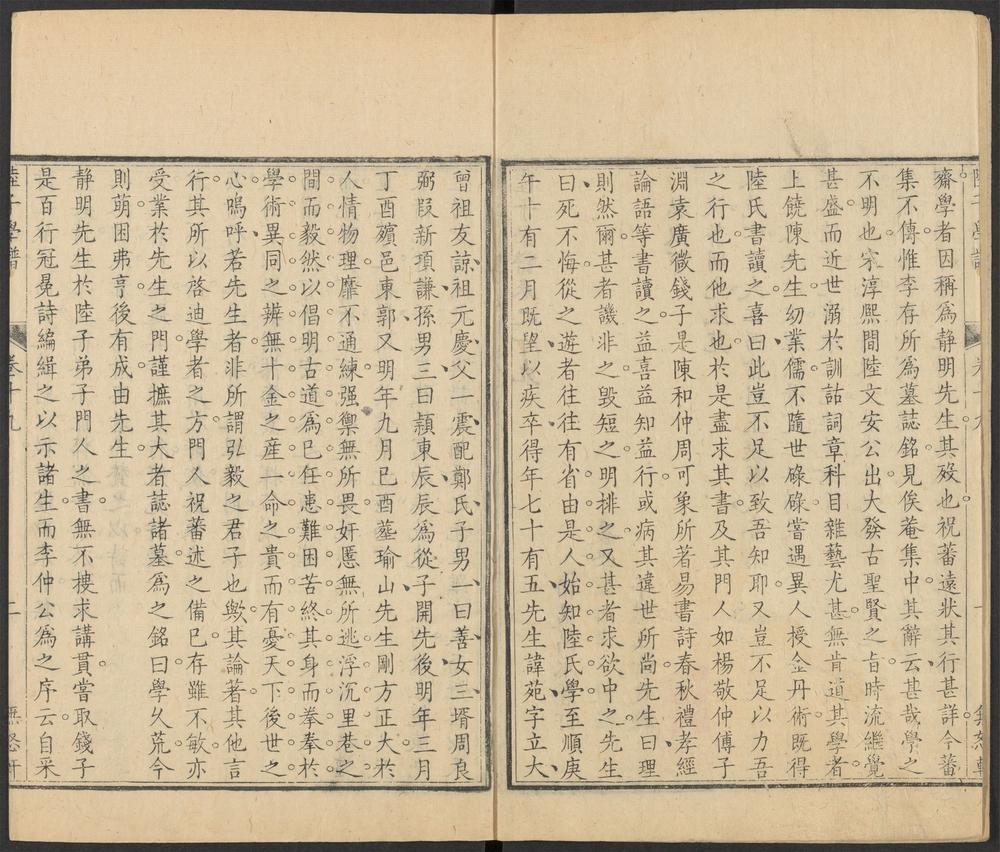 齋學者因稱爲静明先生其歿也祝蕃遠狀其行甚詳今蕃
集不傳惟李存所爲墓誌銘見俟菴集中其辭云甚哉學之
不明也宋淳熙間陸文安公出大發古聖賢之旨時流繼覺
甚盛而近世溺於訓詁詞章科目雜藝尤甚無肯道其學者
上饒陳先生幼業儒不隨世碌碌嘗遇異人授金丹術既得
陸氏書讀之喜曰此豈不足以致吾知耶又豈不足以力吾
之行也而他求也於是盡求其書及其門人如楊敬仲傅子
淵袁廣微錢子是陳和仲周可象所著易書詩春秋禮孝經
論語等書讀之益喜益知益行或病其違世所尚先生曰理
則然爾甚者譏非之毀短之明排之又甚者求欲中之先生
曰死不悔從之遊者往往有省由是人始知陸氏學至順庚
午十有二月既望以疾卒得年七十有五先生諱苑字立大
曾祖友諒祖元慶父一震配鄭氏子男一曰善女三壻周良
弼段新項謙孫男三曰頴東辰辰爲從子開先後明年三月
丁酉殯邑東郭又明年九月已酉塟瑜山先生剛方正大於
人情物理靡不通練强禦無所畏奸慝無所逃浮沉里巷之
間而毅然以倡明古道爲已任患難困苦終其身而拳拳於
學術異同之辨無十金之産一命之貴而有憂天下後世之
心嗚呼若先生者非所謂弘毅之君子也歟其論著其他言
行其所以啓迪學者之方門人祝蕃述之備已存雖不敏亦
受業於先生之門謹摭其大者誌諸墓爲之銘曰學久荒今
則萌困弗亨後有成由先生
静明先生於陸子弟子門人之書無不摟求講貫嘗取錢子
是百行冠冕詩編緝之以示諸生而李仲公爲之序云自采
陸子學譜 卷十九 二 無怒軒